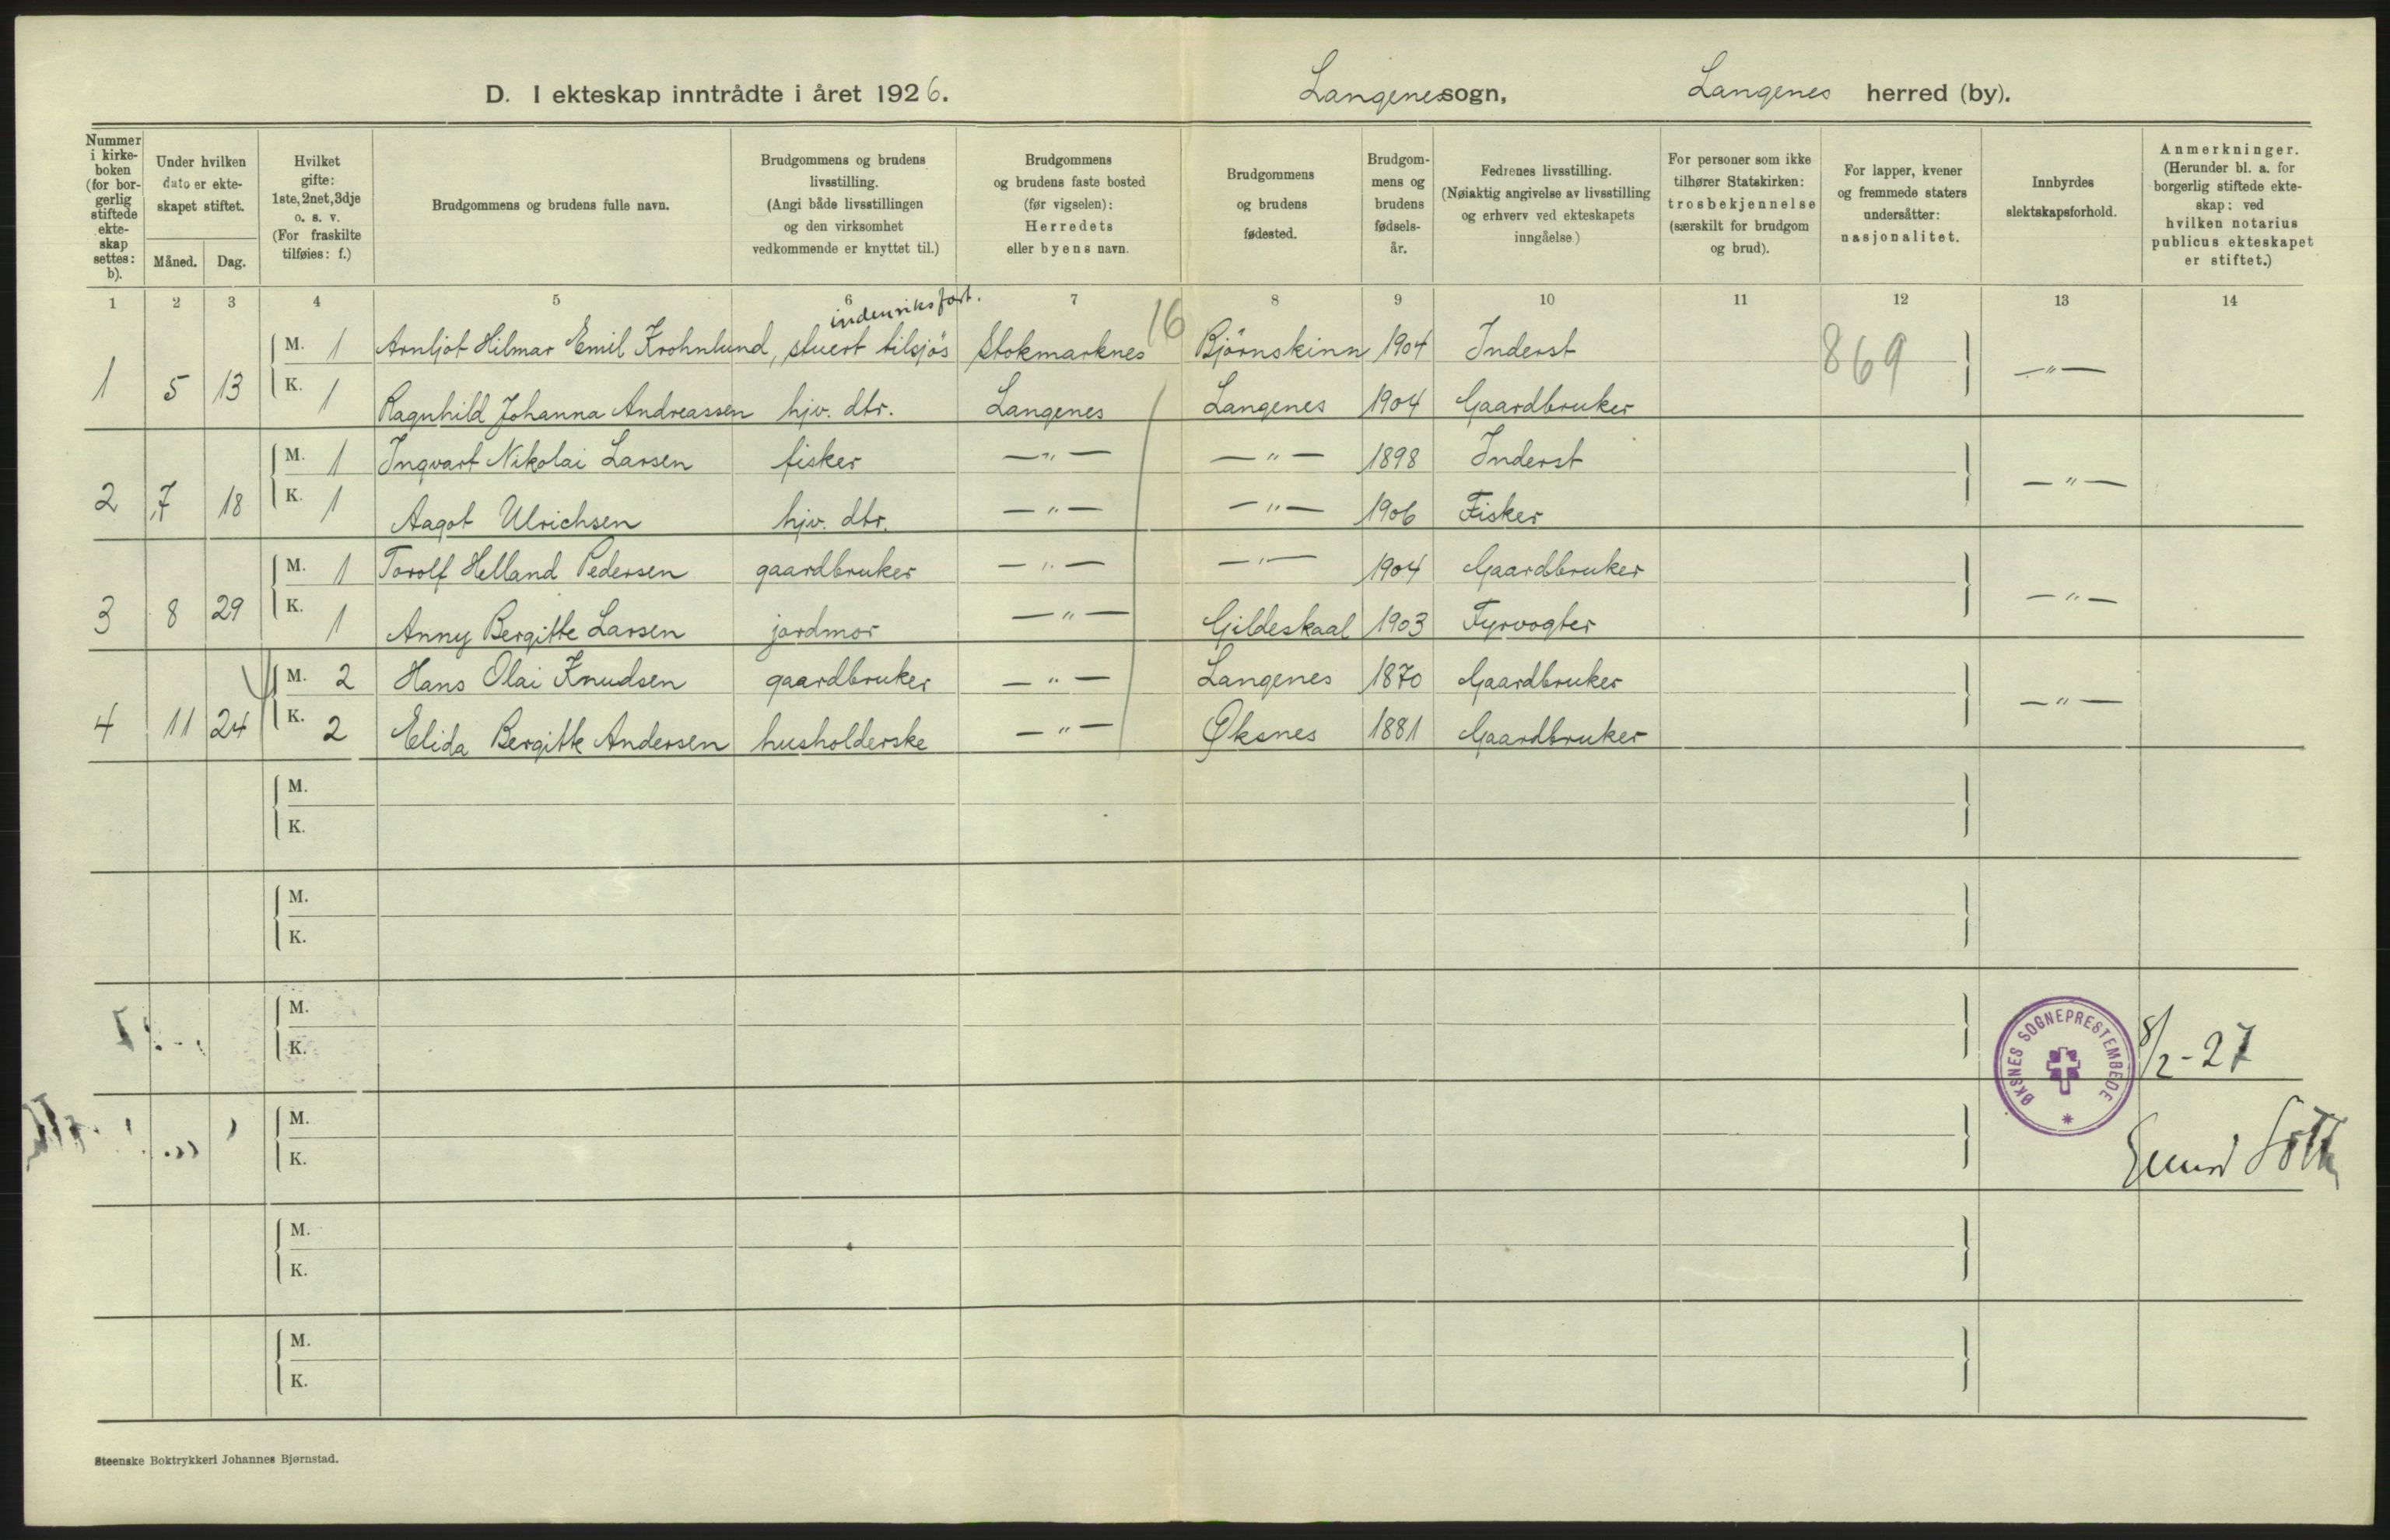 D. I ekteskap inntrådte i året 1926. Langenes sogn, Langenes herred (by).
Nummer i kirkeboken (for borgerlig stiftede ekteskap settes: b).
Under hvilken dato er ekteskapet stiftet.
Måned. Dag.
Hvilket gifte: 1ste, 2net, 3dje o. s. v. (For fraskilte tilføies: f.)
Brudgommens og brudens fulle navn.
Brudgommens og brudens livsstilling. (Angi både livsstillingen og den virksomhet vedkommende er knyttet til.)
Brudgommens og brudens faste bosted (før vigselen): Herredets eller byens navn.
Brudgommens og brudens fødested.
Brudgommens og brudens fødselsår.
Fedrenes livsstilling. (Nøiaktig angivelse av livsstilling og erhverv ved ekteskapets inngåelse)
For personer som ikke tilhører Statskirken: trosbekjennelse (særskilt for brudgom og brud).
For lapper, kvener og fremmede staters undersåtter: nasjonalitet.
Innbyrdes slektskapsforhold.
Anmerkninger. (Herunder bl. a. for borgerlig stiftede ekteskap: ved hvilken notarius publicus ekteskapet er stiftet.)
1 2 3 4 5 6 7 8 9 10 11 12 13 14
indenriksfart. 16
M. 1 Arnljot Hilmar Emil Krohnlund, stuert tilsjøs Stokmarknes Bjørnskinn 1904 Inderst 869
1 5 13 K. 1 Ragnhild Johanna Andreassen hjv. dtr. Langenes Langenes 1904 Gaardbruker — " —
M. 1 Ingvart Nikolai Larsen fisker — " — — " — 1898 Inderst
2 7 18 K. 1 Aagot Ulrichsen hjv. dtr. — " — — " — 1906 Fisker — " —
M. 1 Torolf Helland Pedersen gaardbruker — " — — " — 1904 Gaardbruker
3 8 29 K. 1 Anny Bergitte Larsen jordmor — " — Gildeskaal 1903 Fyrvogter — " —
M. 2 Hans Olai Knudsen gaardbruker — " — Langenes 1870 Gaardbruker
4 11 24 K. 2 Elida Bergitte Andersen husholderske — " — Øksnes 1881 Gaardbruker — " —
M.
K.
M.
K.
M.
K.
ØKSNES SOGNEPRESTEMBEDE
8/2-27
M.
K.
M.
K.
M.
K.
Steenske Boktrykkeri Johannes Bjørnstad.